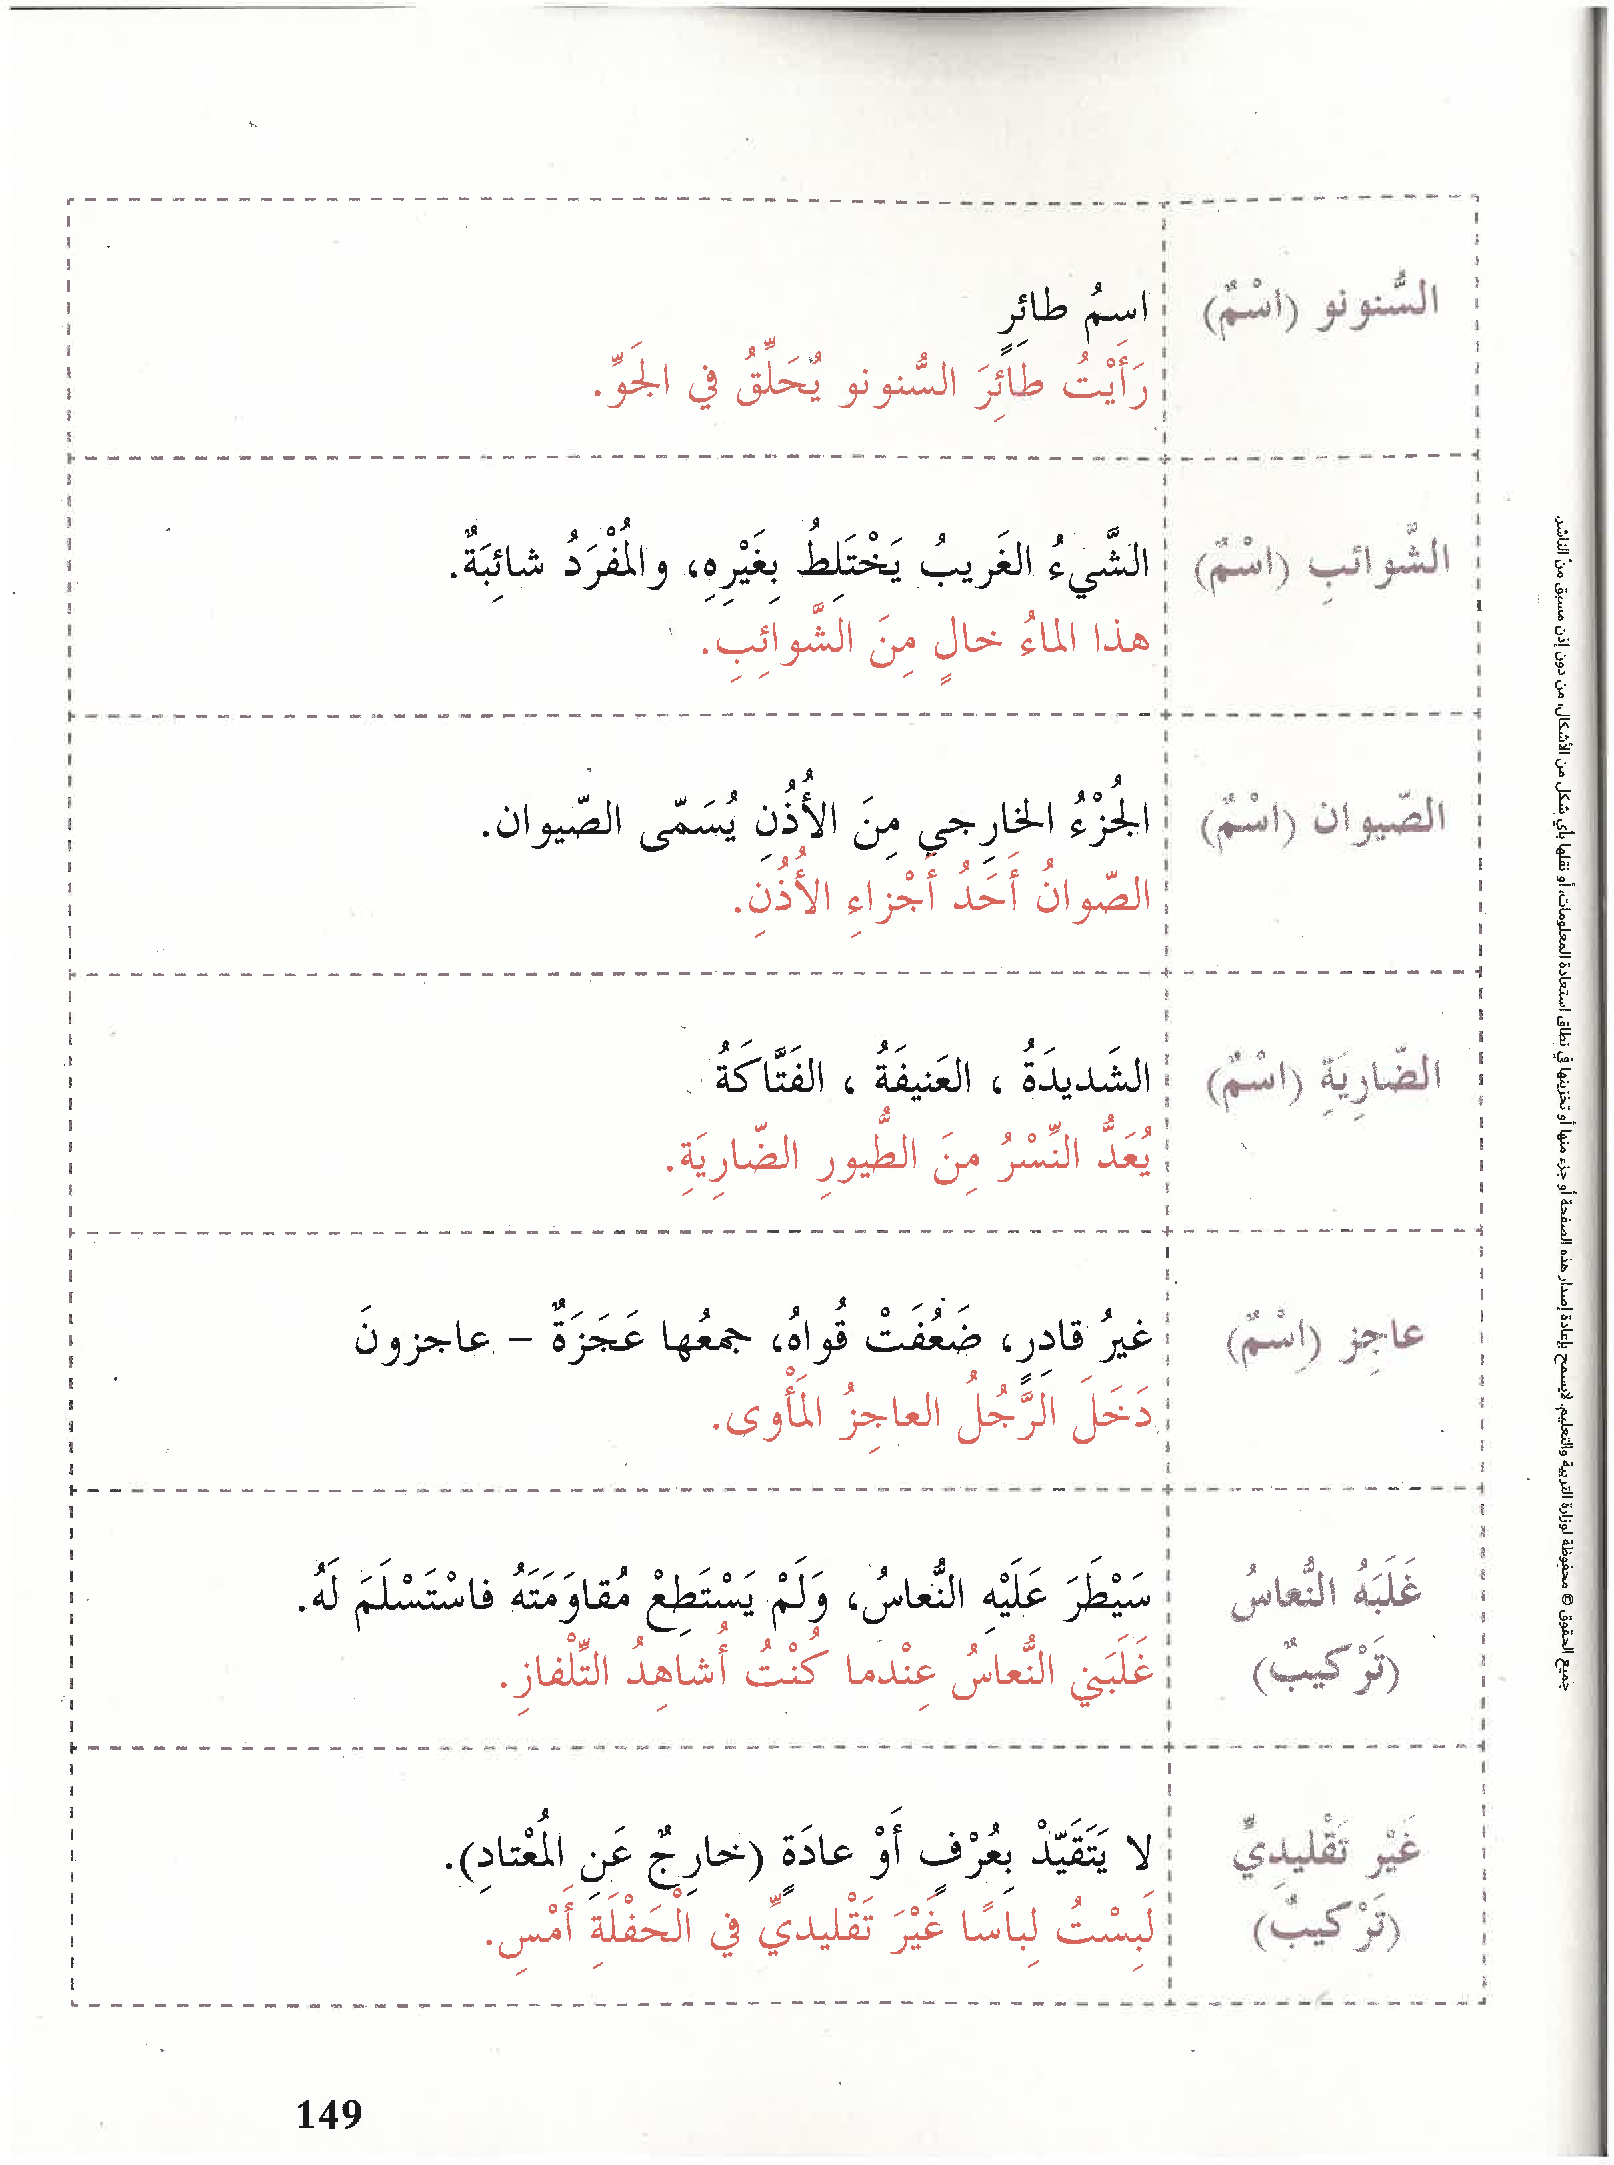 السُّنونو (اسْمٌ)
اسمُ طائِرٍ
رَأَيْتُ طائِرَ السُّنونو يُحَلِّقُ في الجَوِّ.
الشَّوائبِ (اسْمٌ)
الشَّيءُ الغَريبُ يَخْتَلِطُ بِغَيْرِهِ، والمُفْرَدُ شائِبَةٌ.
هذا الماءُ خالٍ مِنَ الشَّوائِبِ.
الصّيوان (اسْمٌ)
الجُزْءُ الخارِجي مِنَ الأُذُنِ يُسَمّى الصّيوان.
الصّوانُ أَحَدُ أَجْزاءِ الأُذُنِ.
الضّارِيَةِ (اسْمٌ)
الشَديدَةُ ، العَنيفَةُ ، الفَتَّاكَةُ
يُعَدُّ النِّسْرُ مِنَ الطُّيورِ الضّارِيَةِ.
عاجِز (اِسْمٌ)
غيرُ قادِرٍ، ضَعُفَتْ قُواهُ، جمعُها عَجَزَةٌ – عاجزونَ
دَخَلَ الرَّجُلُ العاجِزُ المَأْوى.
غَلَبَهُ النُّعاسُ
(تَرْكيبٌ)
سَيْطَرَ عَلَيْهِ النُّعاسُ، وَلَمْ يَسْتَطِعْ مُقاوَمَتَهُ فاسْتَسْلَمَ لَهُ.
غَلَبَني النُّعاسُ عِنْدما كُنْتُ أُشاهِدُ التِّلْفازِ.
غَيْر تَقْليدِيٍّ
(تَرْكيبٌ)
لا يَتَقَيّدْ بِعُرْفٍ أَوْ عادَةٍ (خارِجٌ عَنِ المُعْتادِ).
لَبِسْتُ لِباسًا غَيْرَ تَقْليدِيٍّ في الْحَفْلَةِ أَمْسِ.
جميع الحقوق © محفوظة لوزارة التربية والتعليم. لايسمح بإعادة إصدار هذه الصفحة أو جزء منها أو تخزينها في نطاق استعادة المعلومات، أو نقلها بأي شكل من الأشكال، من دون إذن مسبق من الناشر.
149